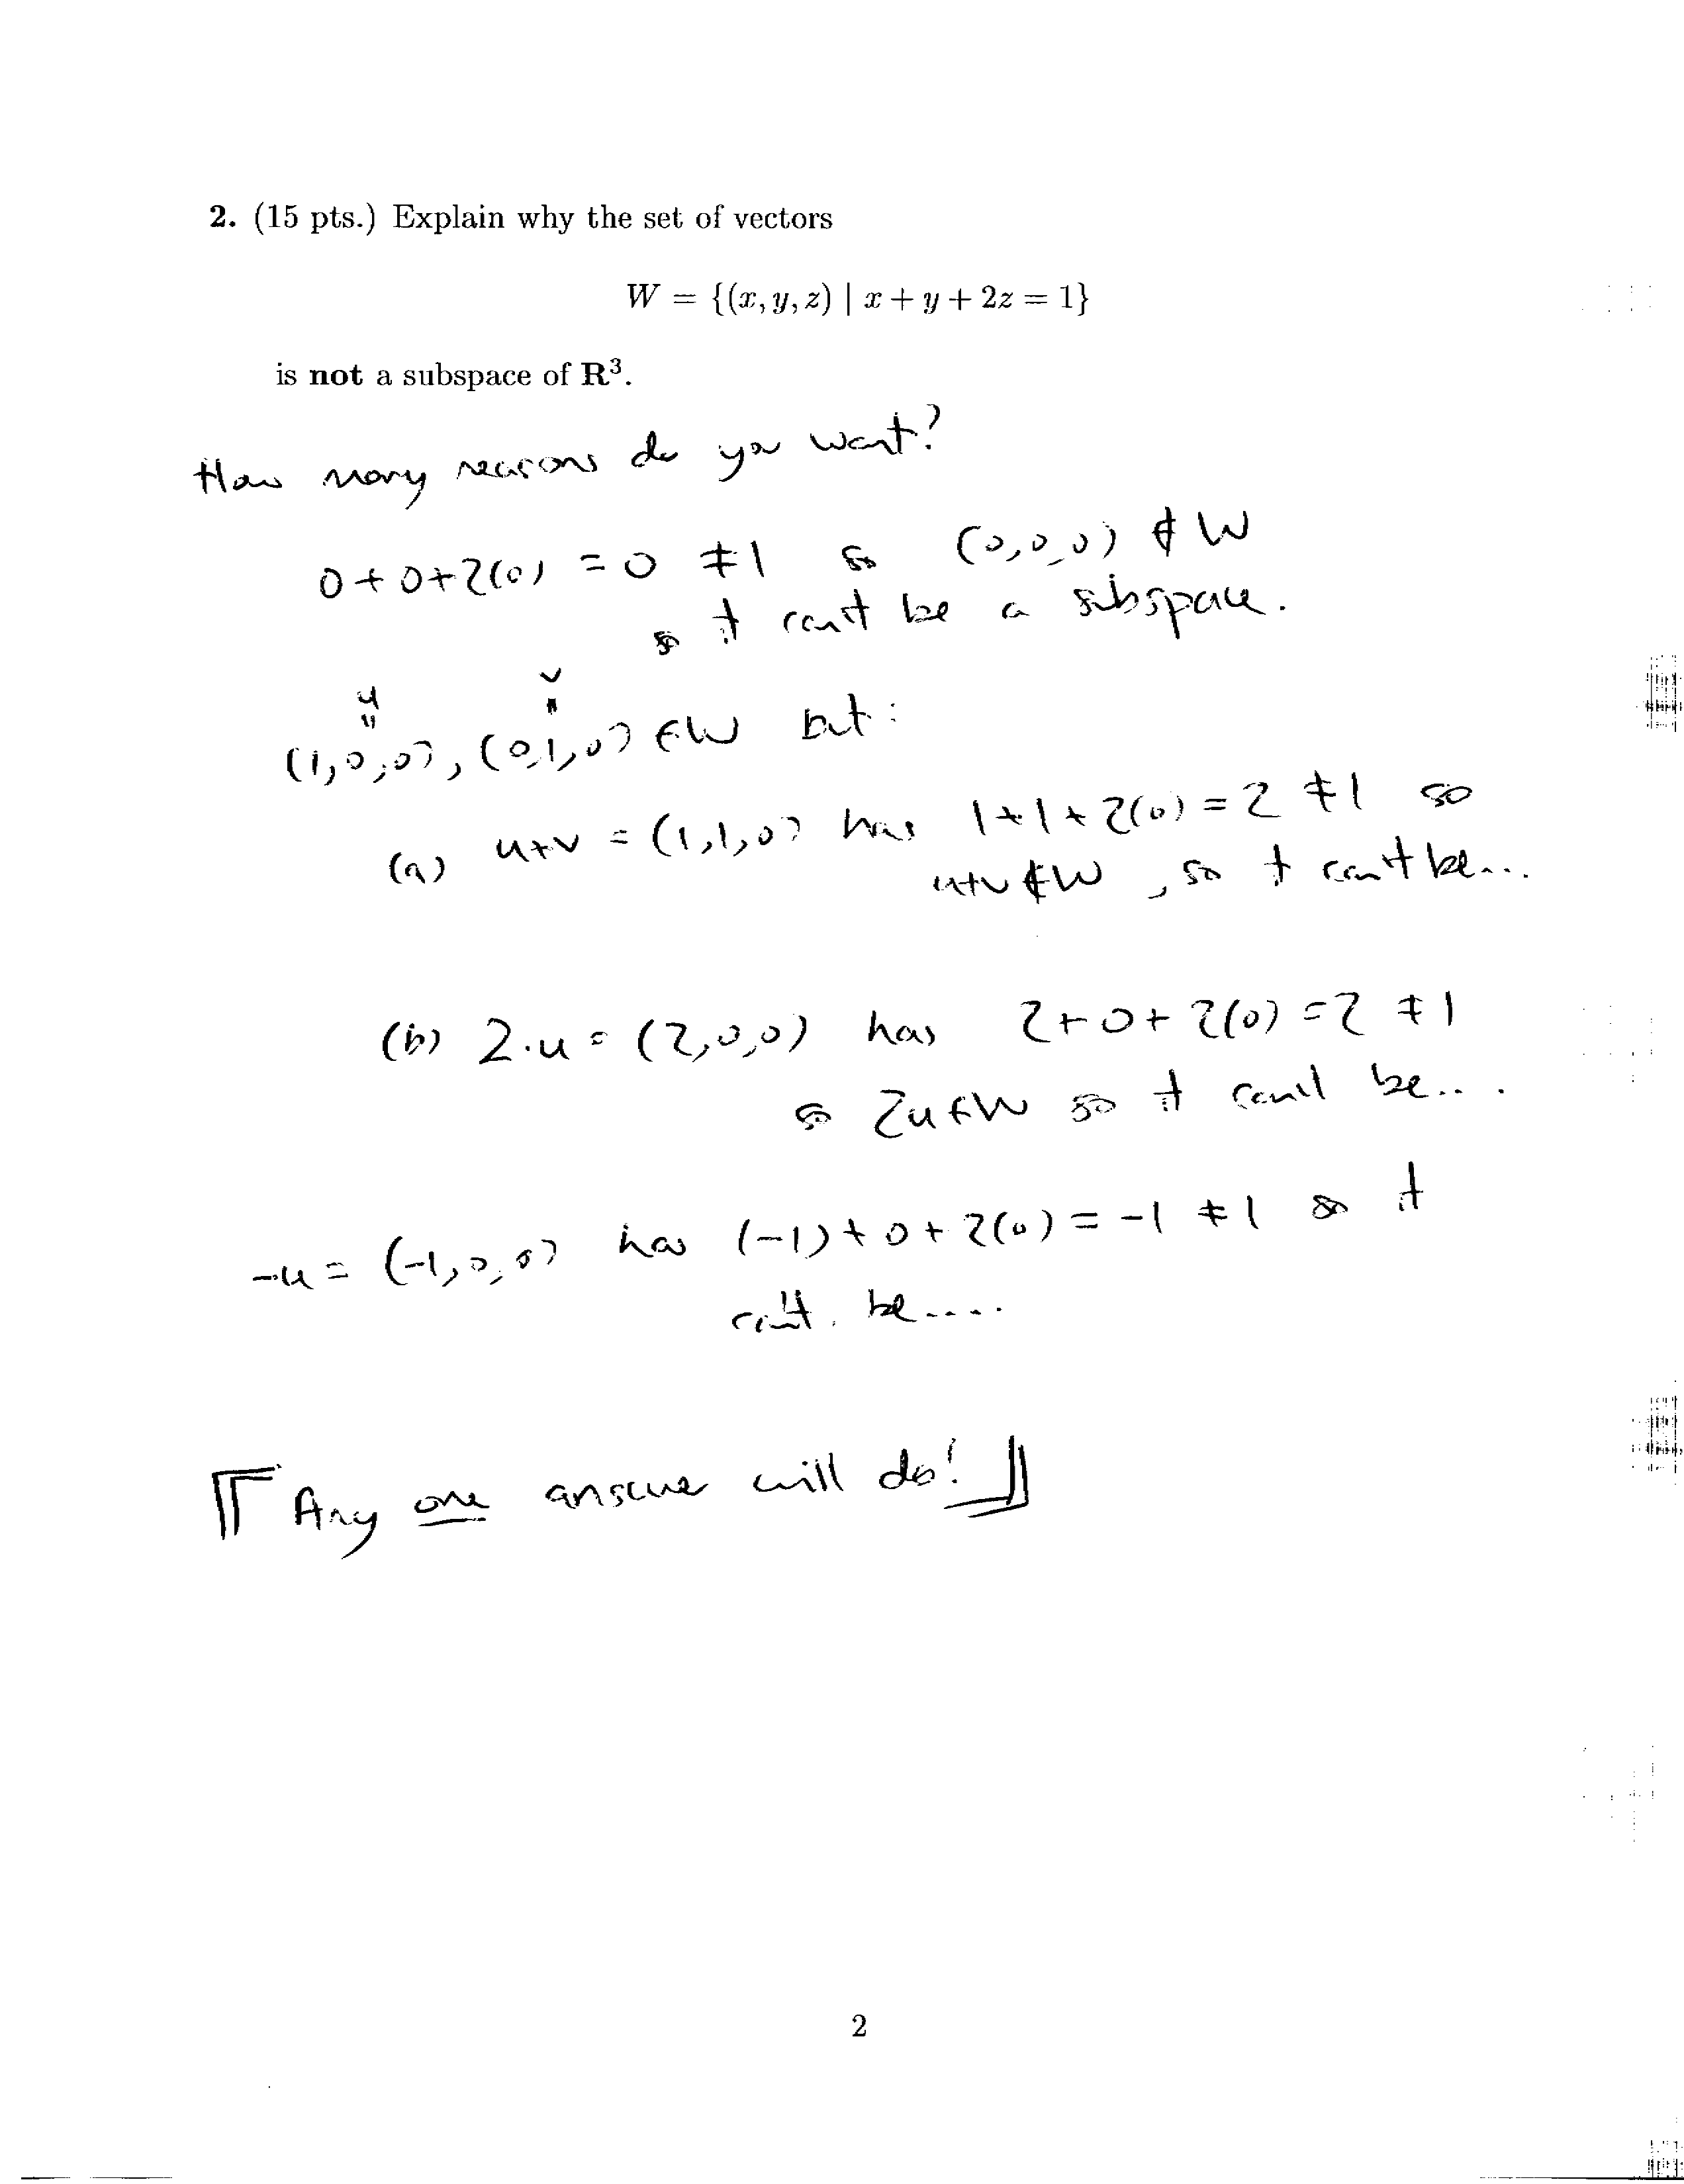 2. (15 pts.) Explain why the set of vectors
W = {(x, y, z) | x + y + 2z = 1}
is not a subspace of R³.
How many reasons do you want?
0+0+2(0) = 0 ≠ 1 so (0,0,0) ∉ W
so it can't be a subspace.
u v
" "
(1,0,0), (0,1,0) ∈ W but:
(a) u+v = (1,1,0) has 1+1+2(0) = 2 ≠ 1 so
u+v ∉ W, so it can't be...
(b) 2·u = (2,0,0) has 2+0+2(0) = 2 ≠ 1
so 2u ∉ W so it can't be....
-u = (-1,0,0) has (-1)+0+2(0) = -1 ≠ 1 so it
can't be.....
⟦ Any one answer will do! ⟧
2